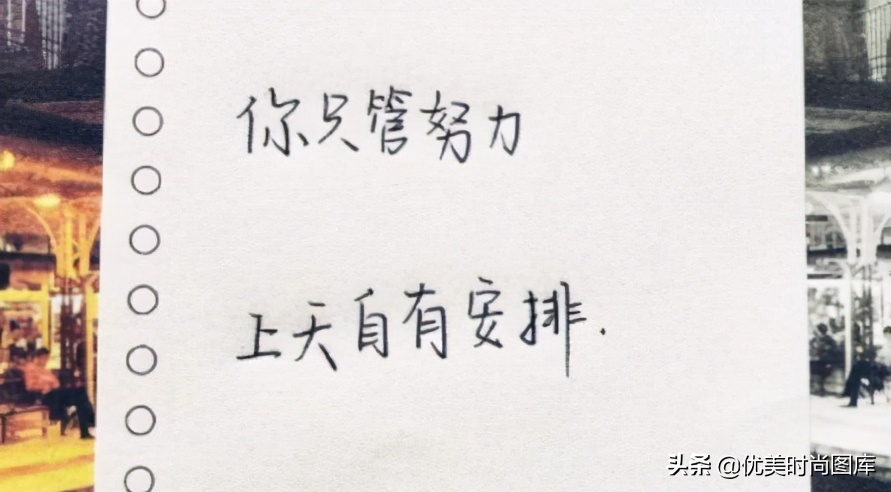 你只管努力
上天自有安排.
头条 @优美时尚图库